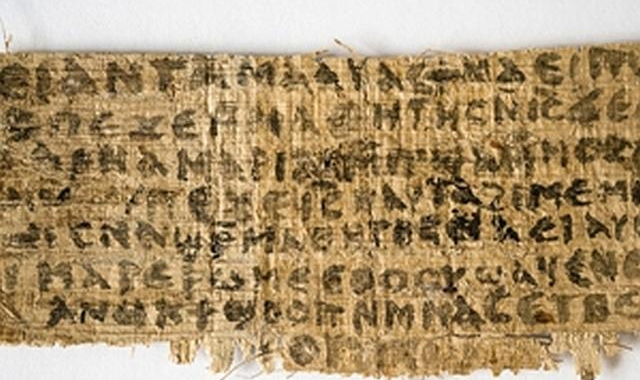 ⲉⲓ ⲁⲛ ⲧⲁⲙⲁⲁⲩ ⲁⲥϯ ⲛⲁⲉⲓ
ⲡⲉϫⲉ ⲙⲙⲁⲑⲏⲧⲏⲥ ⲛⲓ̅ⲥ̅ ϫⲉ
ⲁⲣⲛⲁ ⲙⲁⲣⲓⲁⲙ ⲙⲡϣⲁ ⲙⲙⲟ
ⲡⲉϫⲉ ⲓ̅ⲥ̅ ⲛⲁⲩ ⲧⲁϩⲓⲙⲉ ⲙ
ⲥⲛⲁϣⲣⲙⲁⲑⲏⲧⲏⲥ ⲛⲁⲉⲓ ⲁⲩ
ⲓ ⲙⲁⲣⲉⲣⲱⲙⲉ ⲉⲑⲟⲟⲩ ϣⲁϥⲉ ⲛⲉ
ⲁⲛⲟⲕ ϯϣⲟⲟⲡ ⲛⲙⲙⲁⲥ ⲉⲧⲃⲉ